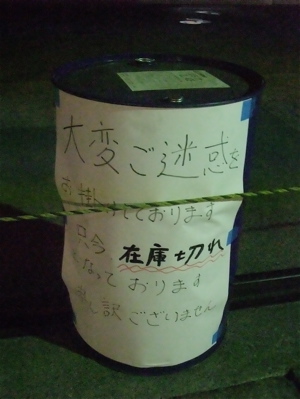 大変ご迷惑を
お掛けしております
只今 在庫切れ
となっております
申し訳ございません